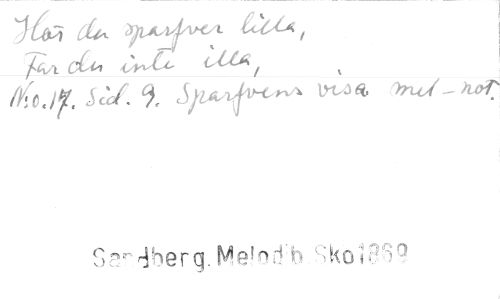 Hör du sparfver lilla,
Far du inte illa,
N:o.17. Sid. 9. Sparfvens visa mel-not.
Sandberg. Melodib. Sko 1869